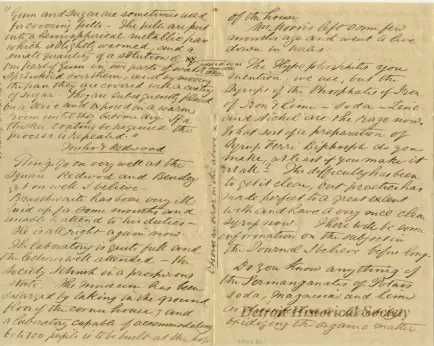 "Gum and sugar are sometimes used
for covering pills. The pills are put
into a hemispherical metallic pan
which is slightly warmed, and a
small quantity of a solution of
one part of gum in two parts of water
sprinkled over them, and by moving
the pan they are covered with a coating
of sugar. They are lastly placed
on a sieve and exposed in a warm
room until they become dry. If a
thicker coating be required the
process is repeated."
& Redwood
Things go on very well at the
Square Redwood and Bentley
get on well I believe.
Braithwaite has been very ill
laid up for some months and
unable to attend to his duties -
He is all right again now.
The laboratory is quite full and
the lectures well attended - the
Society I think in a prosperous
state. The museum has been
enlarged by taking in the ground
floor of the corner house; and
a laboratory capable of accommodating
pupils is to be built at the top
of the house
left some few
months ago and went to live
down in Wales.
The Hypophosphites you
mention, we use, but the
Syrups of the Phosphates of Iron
of Iron & Lime - Soda - Zinc
and are the rage now.
What sort of a preparation of
Syrup Ferri do you
make, at least if you make it
at all? The difficulty has been
to get it clear, but practice has
made perfect to a great extent
with and have a very nice clear
syrup now. There will be some
information on the subject in
the Journal I believe before long.
Do you know anything of
the Permanganates of Potass
soda, magnesia and lime
in
the organic matter
Detroit Historical Society